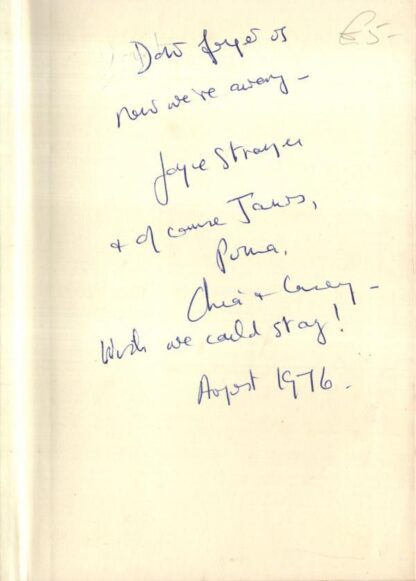 Dont forget us
£5-
now we're away -
Joyce Stranger
& of course Janus,
Puma,
Chita & Casey -
Wish we could stay!
August 1976.